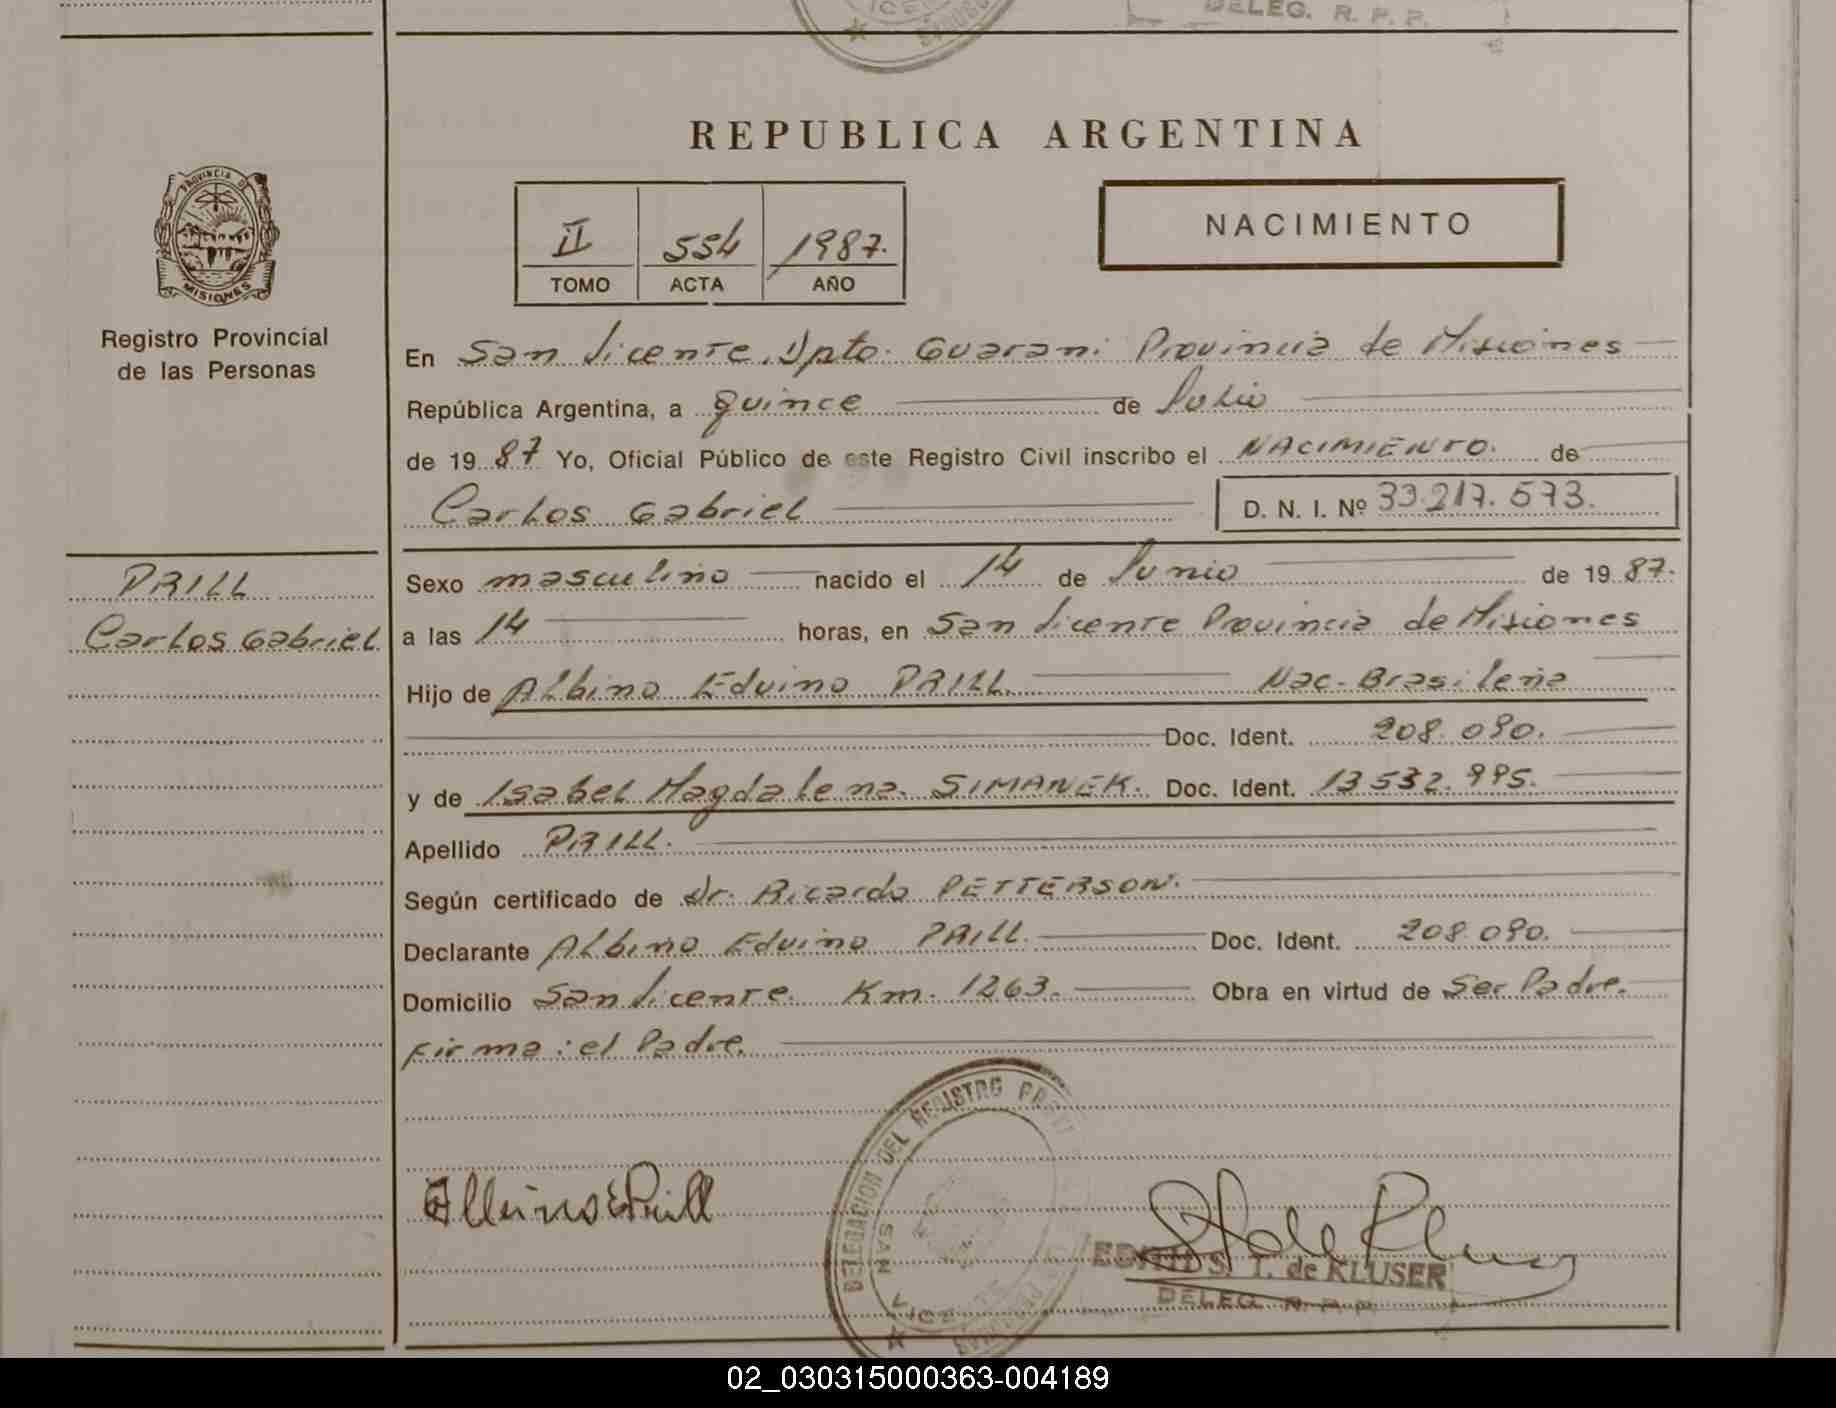 DELEG. R. P. P.
REPUBLICA ARGENTINA
PROVINCIA DE
MISIONES
Registro Provincial
de las Personas
II 554 1987.
TOMO ACTA AÑO
NACIMIENTO
En San Vicente. Dpto. Guarani Provincia de Misiones
República Argentina, a quince de Julio
de 1987 Yo, Oficial Público de este Registro Civil inscribo el NACIMIENTO. de
Carlos Gabriel D. N. I. Nº 33.217.573.
PRILL
Carlos Gabriel
Sexo masculino nacido el 14 de Junio de 1987.
a las 14 horas, en San Vicente Provincia de Misiones
Hijo de Albino Eduino PRILL. Nac. Brasileña
Doc. Ident. 208.090.
y de Isabel Magdalena. SIMANEK. Doc. Ident. 13.532.995.
Apellido PRILL.
Según certificado de Dr. Ricardo PETTERSON.
Declarante Albino Eduino PRILL. Doc. Ident. 208.090.
Domicilio San Vicente. Km. 1263. Obra en virtud de Ser Padre.
Firma: el Padre.
DELEGACION DEL REGISTRO
SAN VICENTE
Albino E Prill
S. T. de KLUSER
DELEG. R. P. P.
02_030315000363-004189